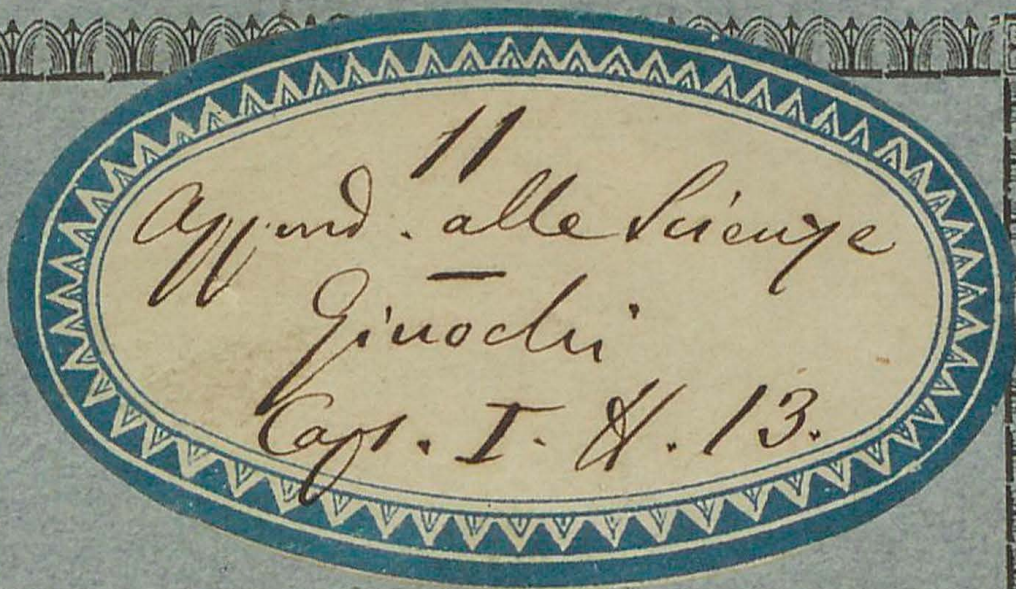 11
Append. alle Scienze
Giuochi
Cap. I. N. 13.